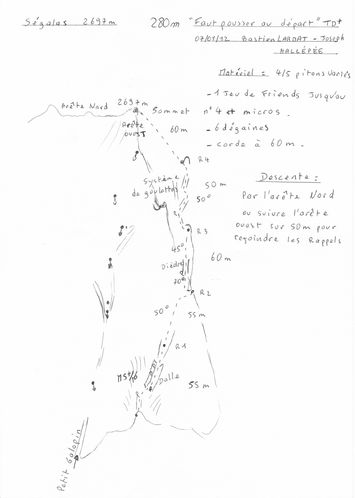 Ségalas 2697m
280m "Faut pousser au départ" TD+
07/01/12 Bastien LARDAT - Joseph
MALLÉPÉE
Matériel : 4/5 pitons variés
- 1 Jeu de Friends Jusqu'au
n°4 et micros.
- 6 dégaines
- corde à 60m.
Arête Nord
2697m
Sommet
Arête
ouest
60m
R4
Système
de goulottes
50m
50°
R3
45°
Dièdre
60m
70°
R2
50°
55m
R1
M5+/6
Dalle
55m
Petit Galopin
Descente :
Par l'arête Nord
ou suivre l'arête
ouest sur 50m pour
rejoindre les Rappels